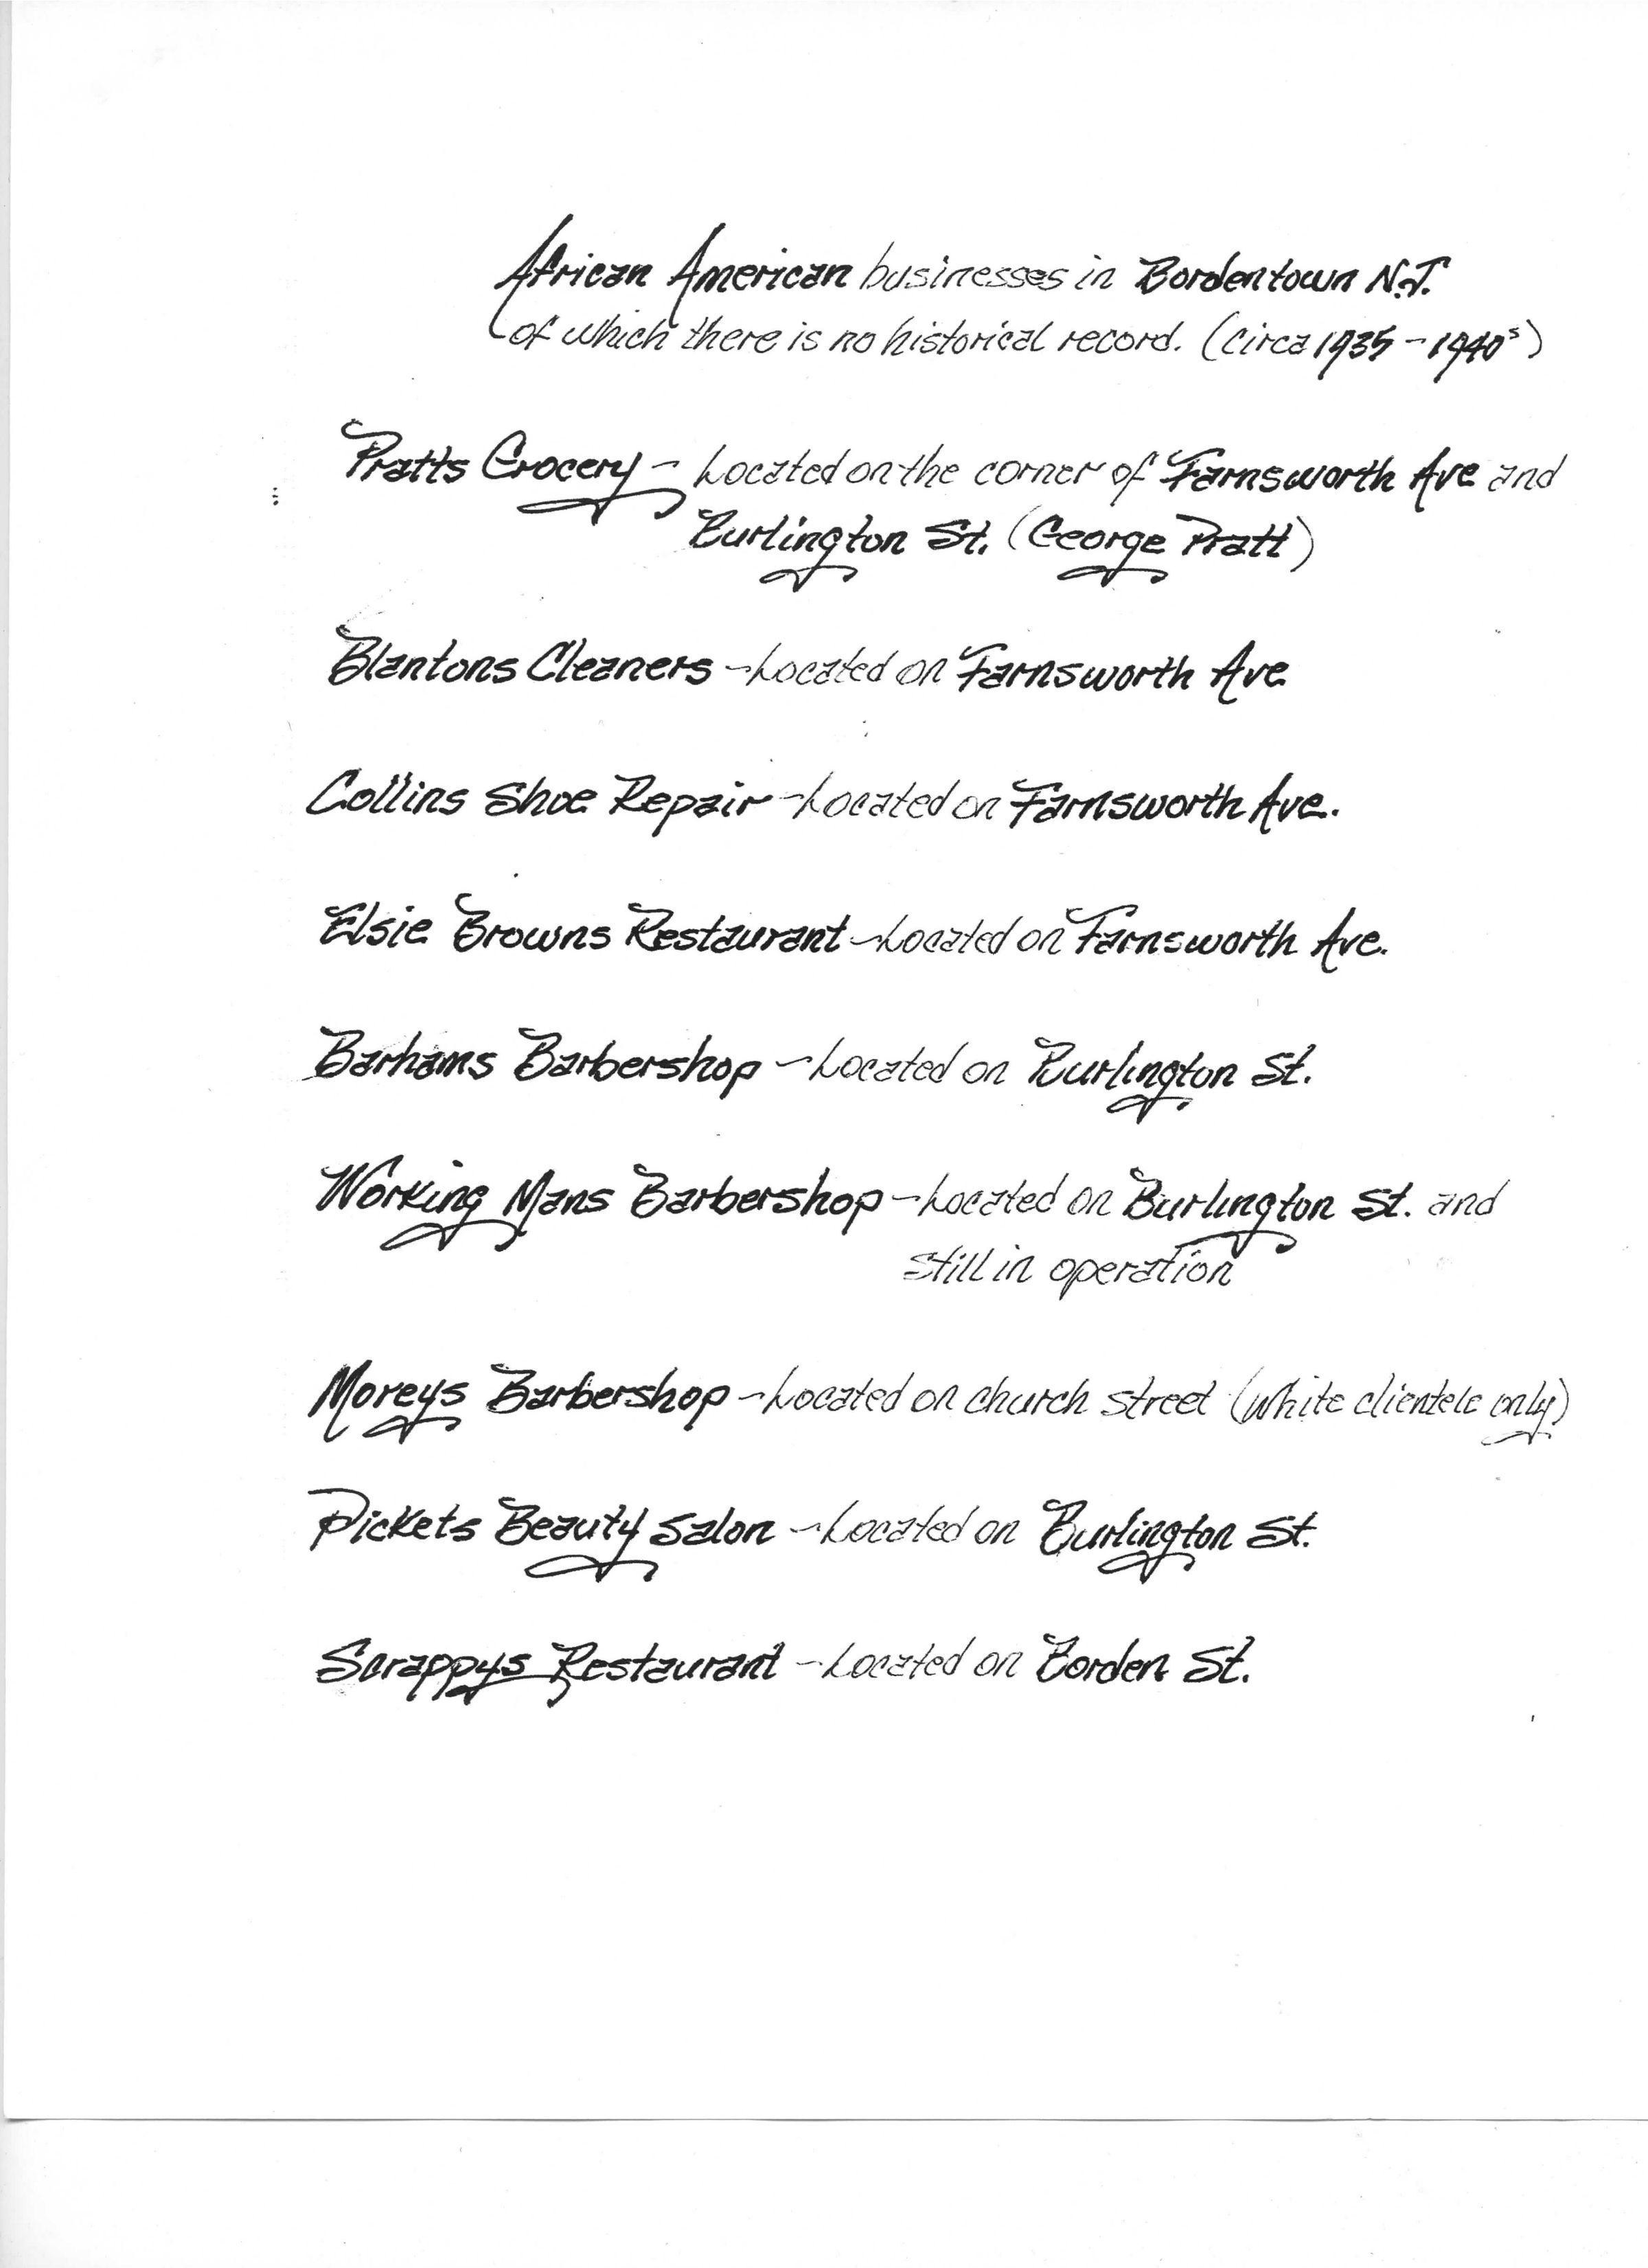 African American businesses in Bordentown N.J.
of which there is no historical record. (Circa 1935 - 1940s)
Pratts Grocery - Located on the corner of Farnsworth Ave and
Burlington St. (George Pratt)
Blantons Cleaners - Located on Farnsworth Ave
Collins Shoe Repair - Located on Farnsworth Ave.
Elsie Browns Restaurant - Located on Farnsworth Ave.
Barhams Barbershop - Located on Burlington St.
Working Mans Barbershop - Located on Burlington St. and
still in operation
Moreys Barbershop - Located on church street (White clientele only)
Pickets Beauty Salon - Located on Burlington St.
Scrappys Restaurant - Located on Borden St.